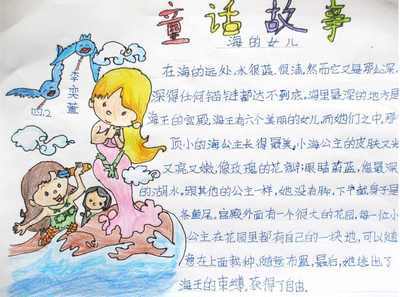 童话故事
海的女儿
李奕萱
四.2
在海的远处,水很蓝.很清,然而它又是那么深.
深得任何锚链都达不到底,海里最深的地方是
海王的宫殿,海王有六个美丽的女儿,而她们之中,那
顶小的海公主长得最美,小海公主的皮肤又光
又亮又嫩,像玫瑰的花瓣;眼睛蔚蓝,像最深
的湖水,跟其他的公主一样,她没有脚,下半截身子是
条鱼尾,宫殿外面有一个很大的花园,每一位小
公主在花园里都有自己的一块地,可以随
意在上面栽种,随意布置,最后,她逃出了
海王的束缚.获得了自由.